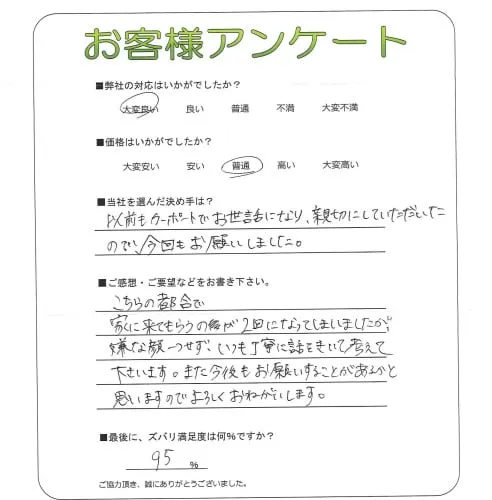 お客様アンケート
■弊社の対応はいかがでしたか？
大変良い 良い 普通 不満 大変不満
■価格はいかがでしたか？
大変安い 安い 普通 高い 大変高い
■当社を選んだ決め手は？
以前もカーポートでお世話になり、親切にしていただいた
ので、今回もお願いしました。
■ご感想・ご要望などをお書き下さい。
こちらの都合で
家に来てもらうのが2回になってしまいましたが、
嫌な顔一つせず、いつも丁寧に話をきいて考えて
下さいます。また今後もお願いすることがあるかと
思いますのでよろしくおねがいします。
■最後に、ズバリ満足度は何％ですか？
95 ％
ご協力頂き、誠にありがとうございました。